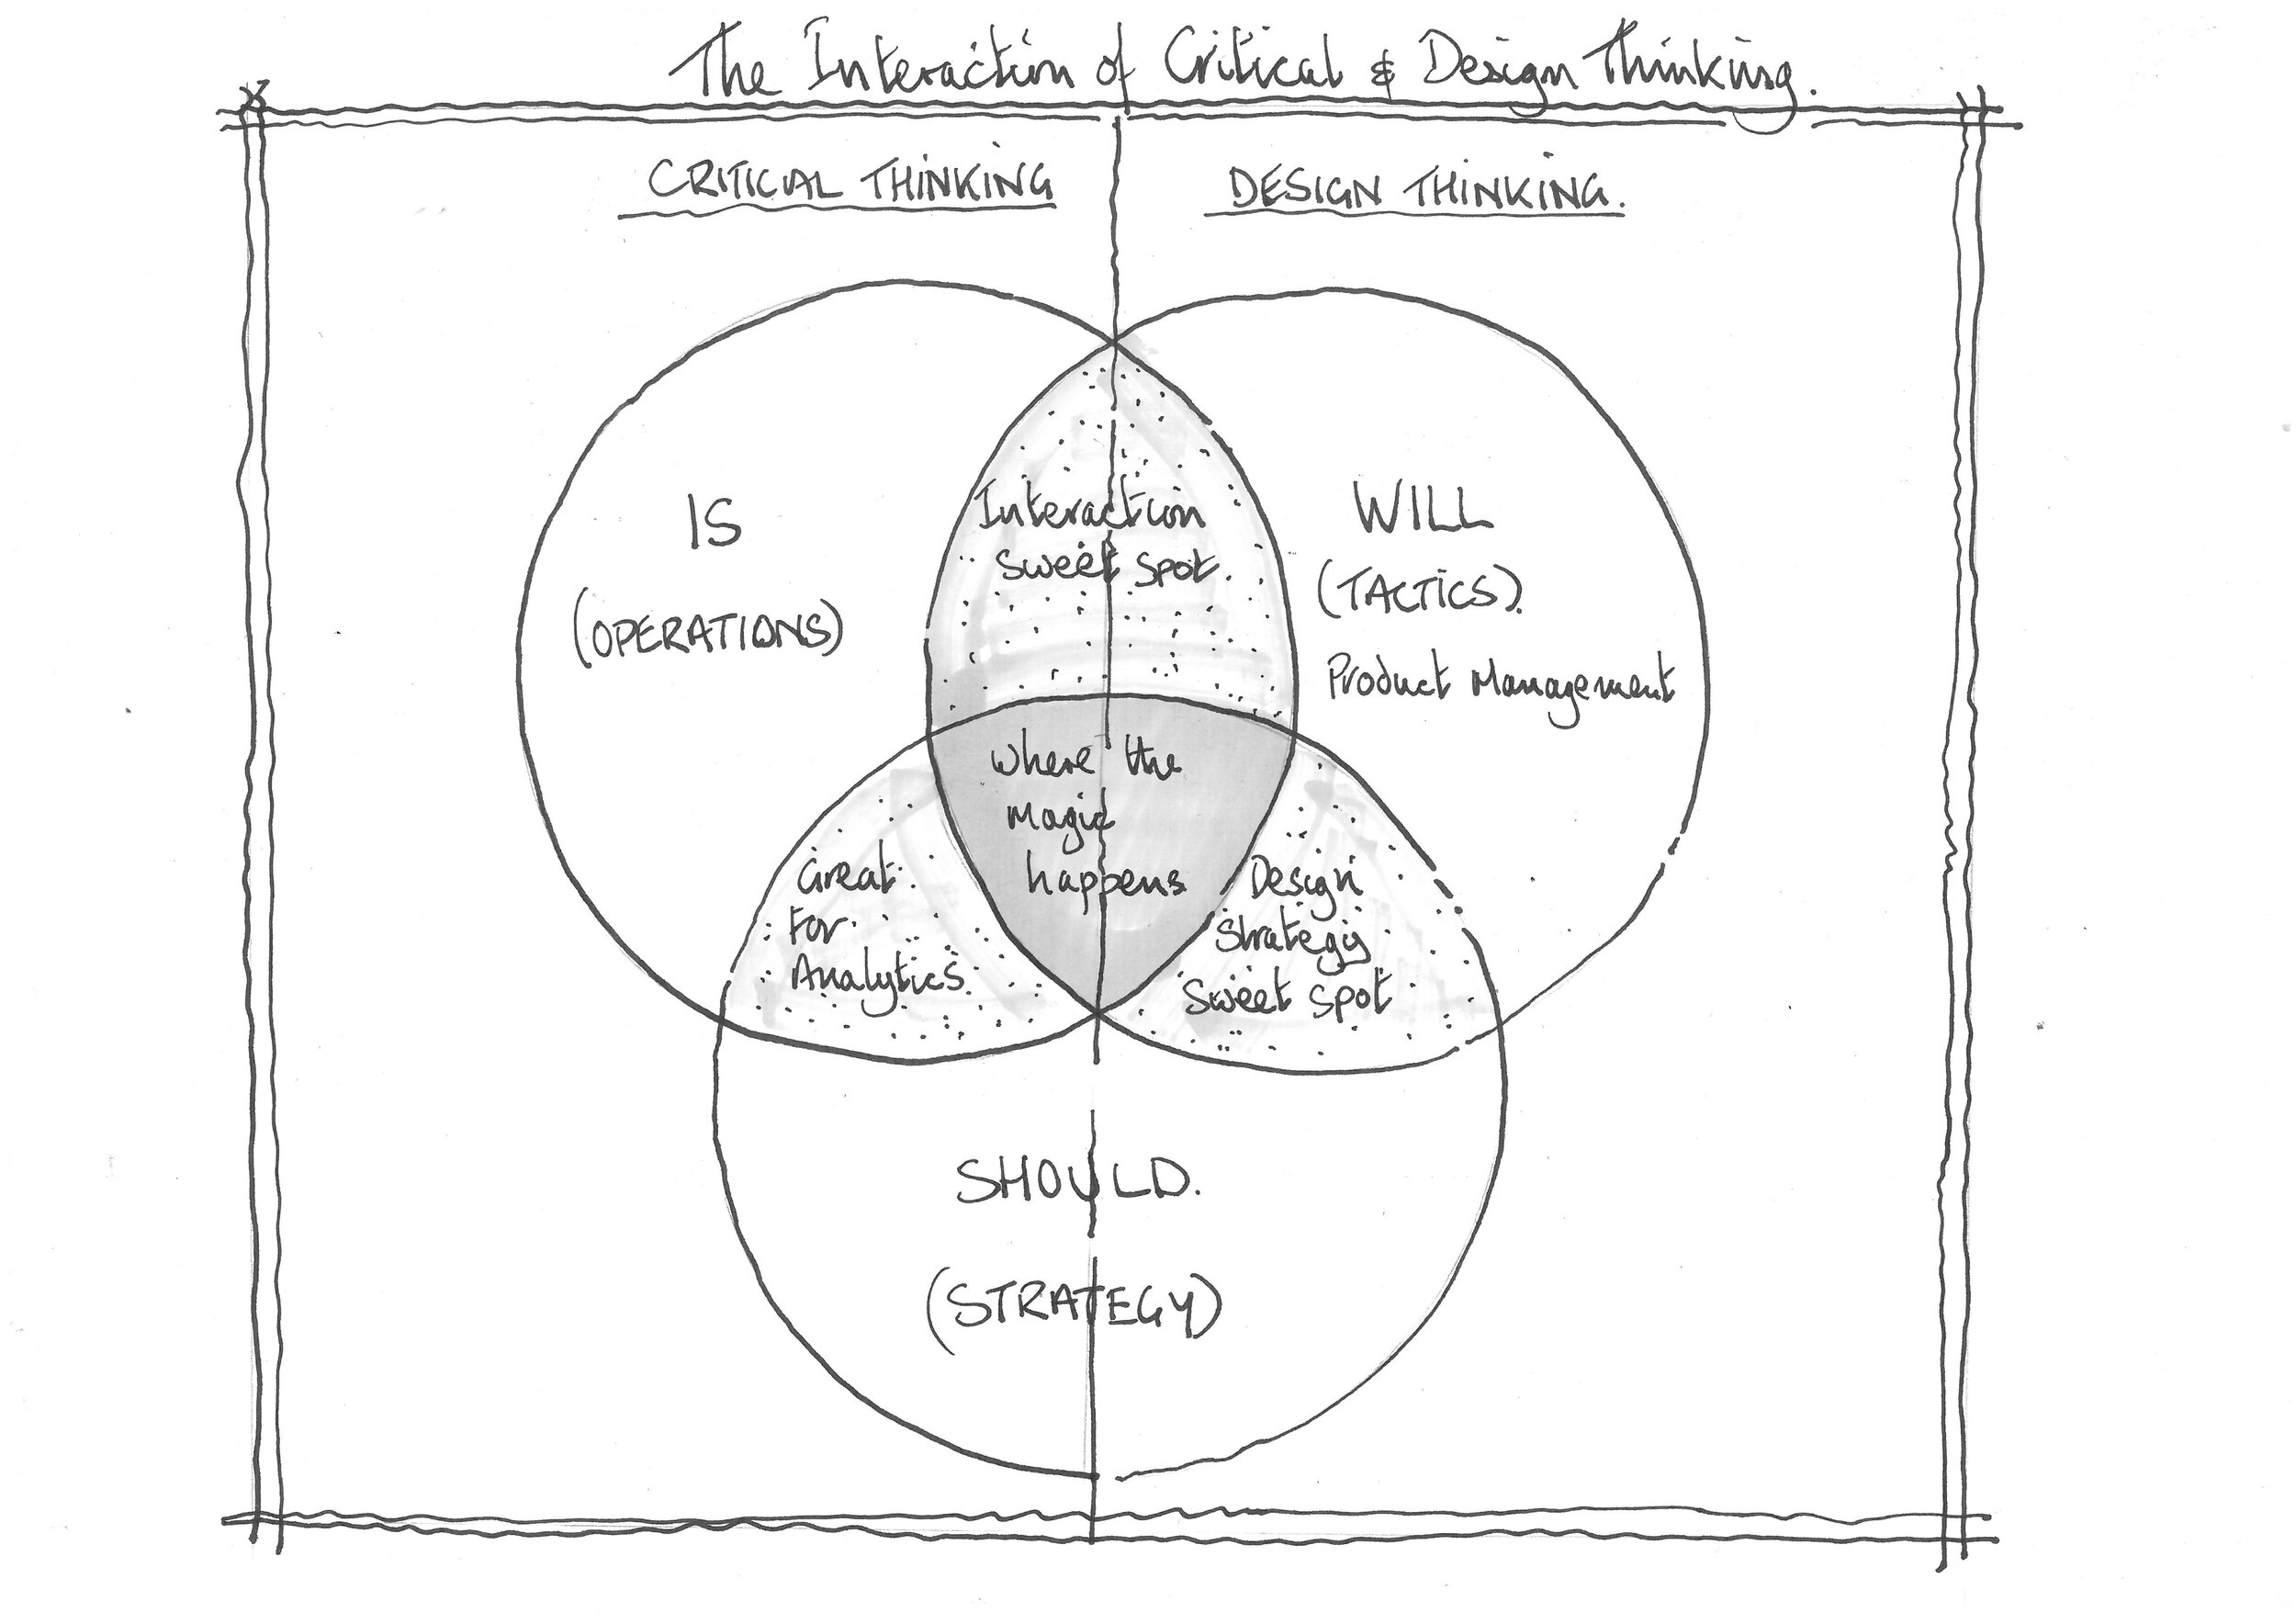 The Interaction of Critical & Design Thinking.
CRITICAL THINKING
DESIGN THINKING.
IS
(OPERATIONS)
Interaction
Sweet Spot.
WILL
(TACTICS).
Product Management
Where the
Magic
happens
Great
For
Analytics.
Design
Strategy
Sweet Spot
SHOULD.
(STRATEGY)